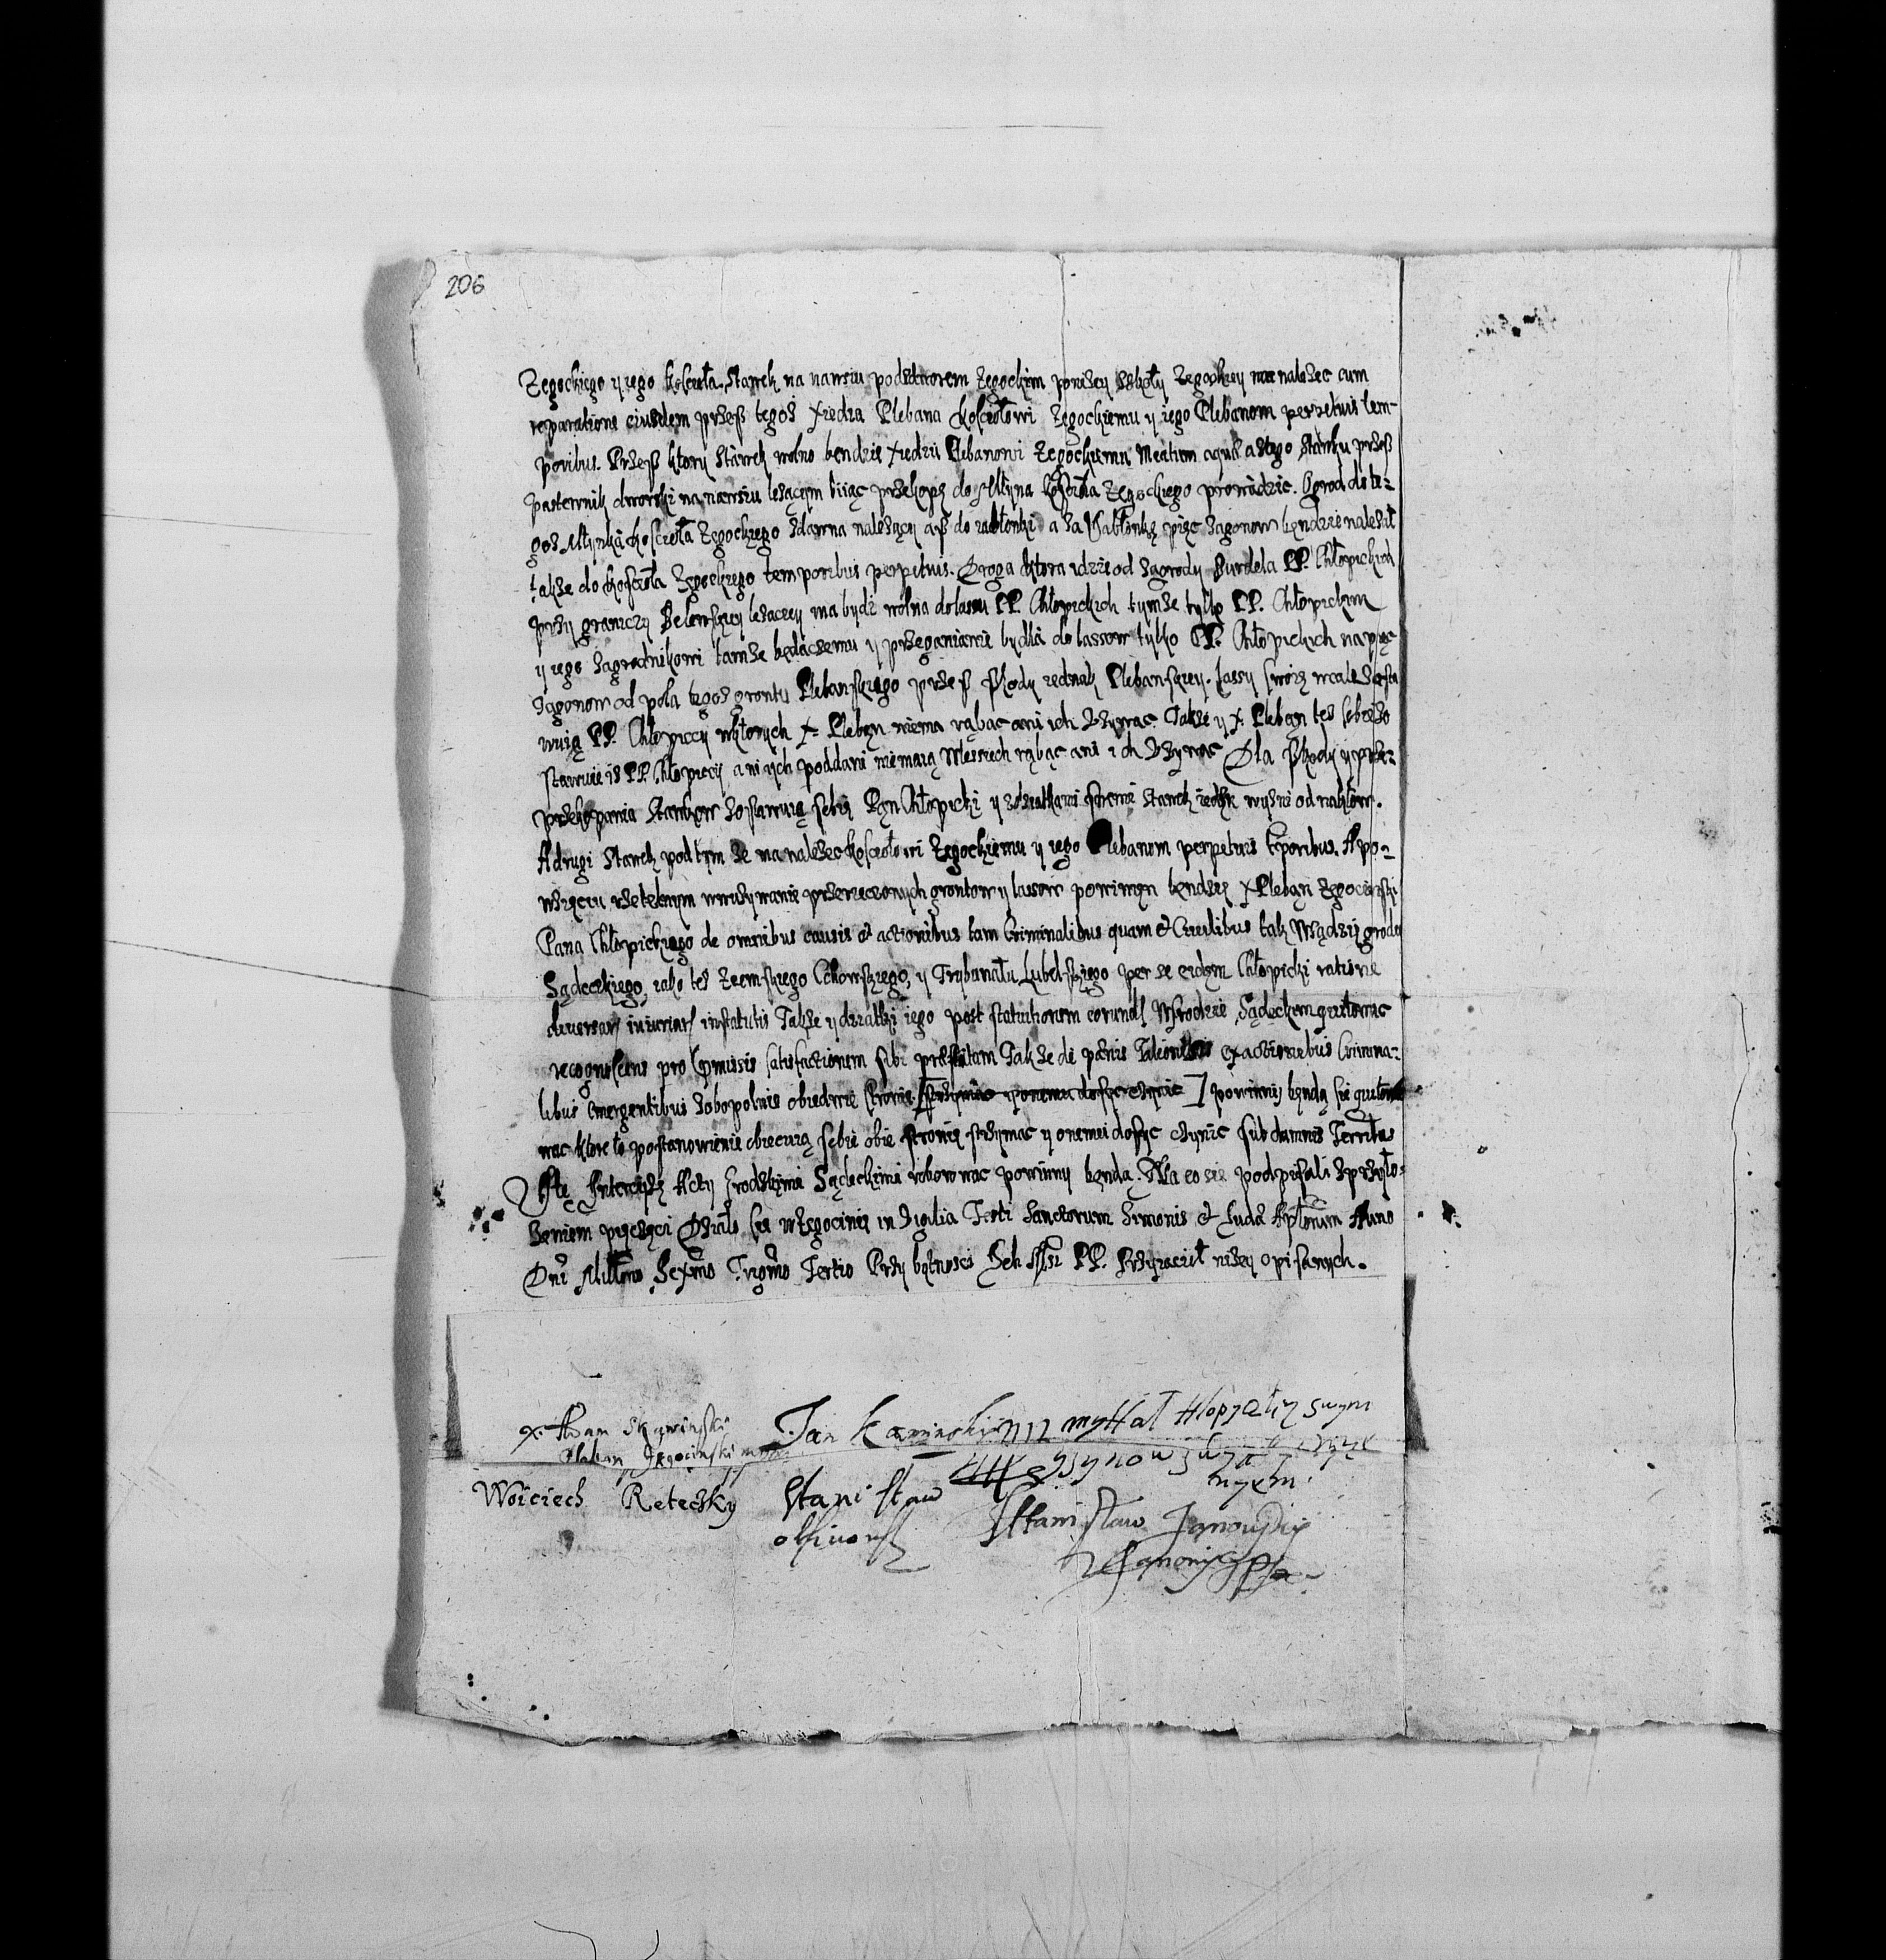 206
Zęgockiego y iego kościoła. Stawek na nawsiu pod dworem Zęgockim poniżey szkoły Zęgockiey ma należec cum
reparatione eiusdem przesz tegoż Xiedza Plebana kosciołowi Zęgockiemu y iego Plebanom perpetuis tem-
poribus. Przesz ktory Stawek wolno bendzie Xiedzu Plebanowi Zegockiemu Meatum aquae a z tego Stawku przesz
pastewnik dworski na nawsiu leżącym biiąc przekopę do Młyna Kościoła Zęgockiego prowadzic. Ogrod do te-
goż Młynka Koscioła Zęgockiego zdawna należący aż do Jabłonki a za Jabłonkę pięc zagonow bendzie należał
także do Koscioła Zęgockiego temporibus perpetuis. Droga ktora idzie od zagrody Burdela PP. Chłopickich
przy graniczy Belenskiey leżaczey ma bydz wolna do lassu PP. Chłopickich tymże tylko PP. Chłopickim
y iego zagrodnikowi tamże będaczemu y przeganianie bydła do lassow tylko PP. Chłopickich na pięc
zagonow od pola tegoż grontu Plebanskiego przesz szkody iednak Plebanskiey. Lassy swoię wcale zosta
wuią PP. Chłopiccy w ktorych X. Pleban niema rąbac ani ich uzywac. Także y X. Pleban też sobie zo
stawuie iż PP. Chłopiccy ani ych poddani niemaią w lessiech rąbąc ani ich uzywac Dla szkody y prze-
przekopania Stawkow zostawuią sobię Pan Chłopicki y z dziatkami swemi Stawek ieden wyżni od nakłow.
A drugi Stawek pod tym że ma należec kosciołowi Zęgockiemu y iego Plebanom perpetuis temporibus. A po-
wzięciu rzetelnym w używanie przerzeczonych grontow y lassow powinięn bendzię X Pleban Zęgocinski
Pana Chłopickiego de omnibus causis et actionibus tam Criminalibus quam et Civilibus tak w sądzię grodu
Sądeczkiego, iako też Zeemskiego Cchowskiego, y Trybunału Lubelskiego per se eidem Chłopicki ratione
diversar iniuriar institutis Także y dziatki iego post statutionem eorund w Grodzie Sądeckiem quitowac
recognoscens pro praemissis satisfactionem sibi praestitam Także de paenis Talionibus ex actionibus Crimina-
libus emergentibus zobopolnie obiedwie stronie [strzymac y onemu dosyc czynic] powinni będą się quitowa
wac ktore to postanowienie obiecuią sobie obie stronię strzymac y onemu dosyc czynic sub damnis Territus
Tę Intercizę Acty Grodzkimi Sądeckimi roborowac powinny bęndą. Na co się podpisali z przyło-
żeniem pięczęci Działo się w Zęgocinię in Vigilia Festi Sanctorum Simonis et Iudae Aplorum Anno
Dni Millmo Sexmo Trigmo Tertio Przy bytnosci Ich Mści PP. Przyiacioł niżey opisanych.
X. Adam Skawinski
Pleban Zęgocinski mp
Jan Kaminski
Woiciech Retecżky
Stanisław
Stanisław Janowsky